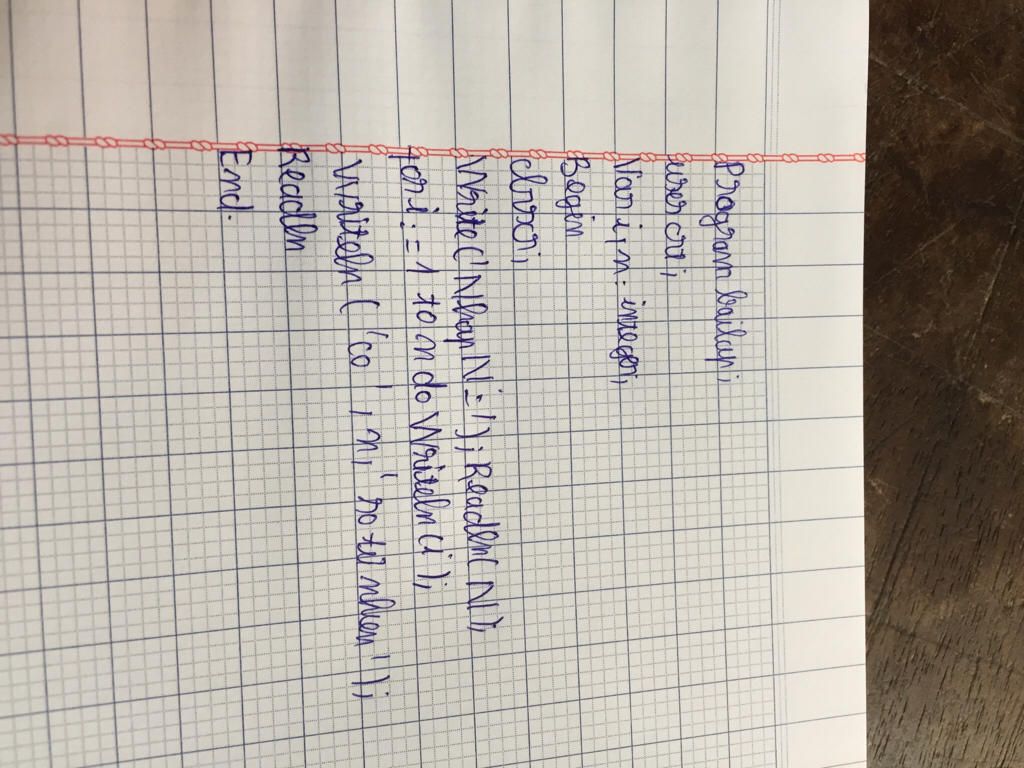 Program bailap;
user crt;
Var i, n: integer;
Begin
clrscr;
Write('Nhap N='); Readln(N);
for i:=1 to n do Writeln(i);
Writeln('co', n, 'so tu nhien');
Readln
End.